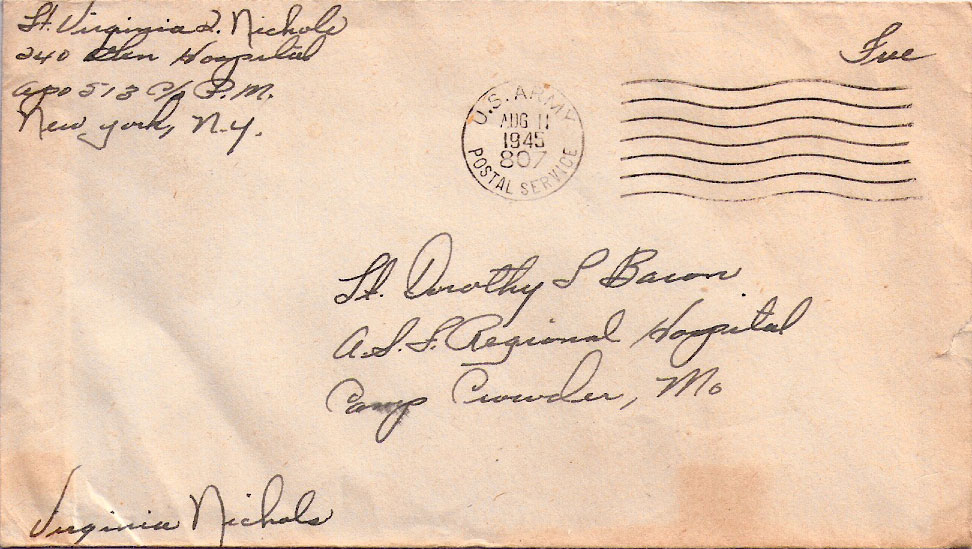 Lt. Virginia L. Nichols
240 Gen Hospital
APO 513 c/o P.M.
New York, N.Y.
Free
U.S. ARMY
AUG 11
1945
807
POSTAL SERVICE
Lt. Dorothy S Bacon
A.S.F. Regional Hospital
Camp Crowder, Mo
Virginia Nichols